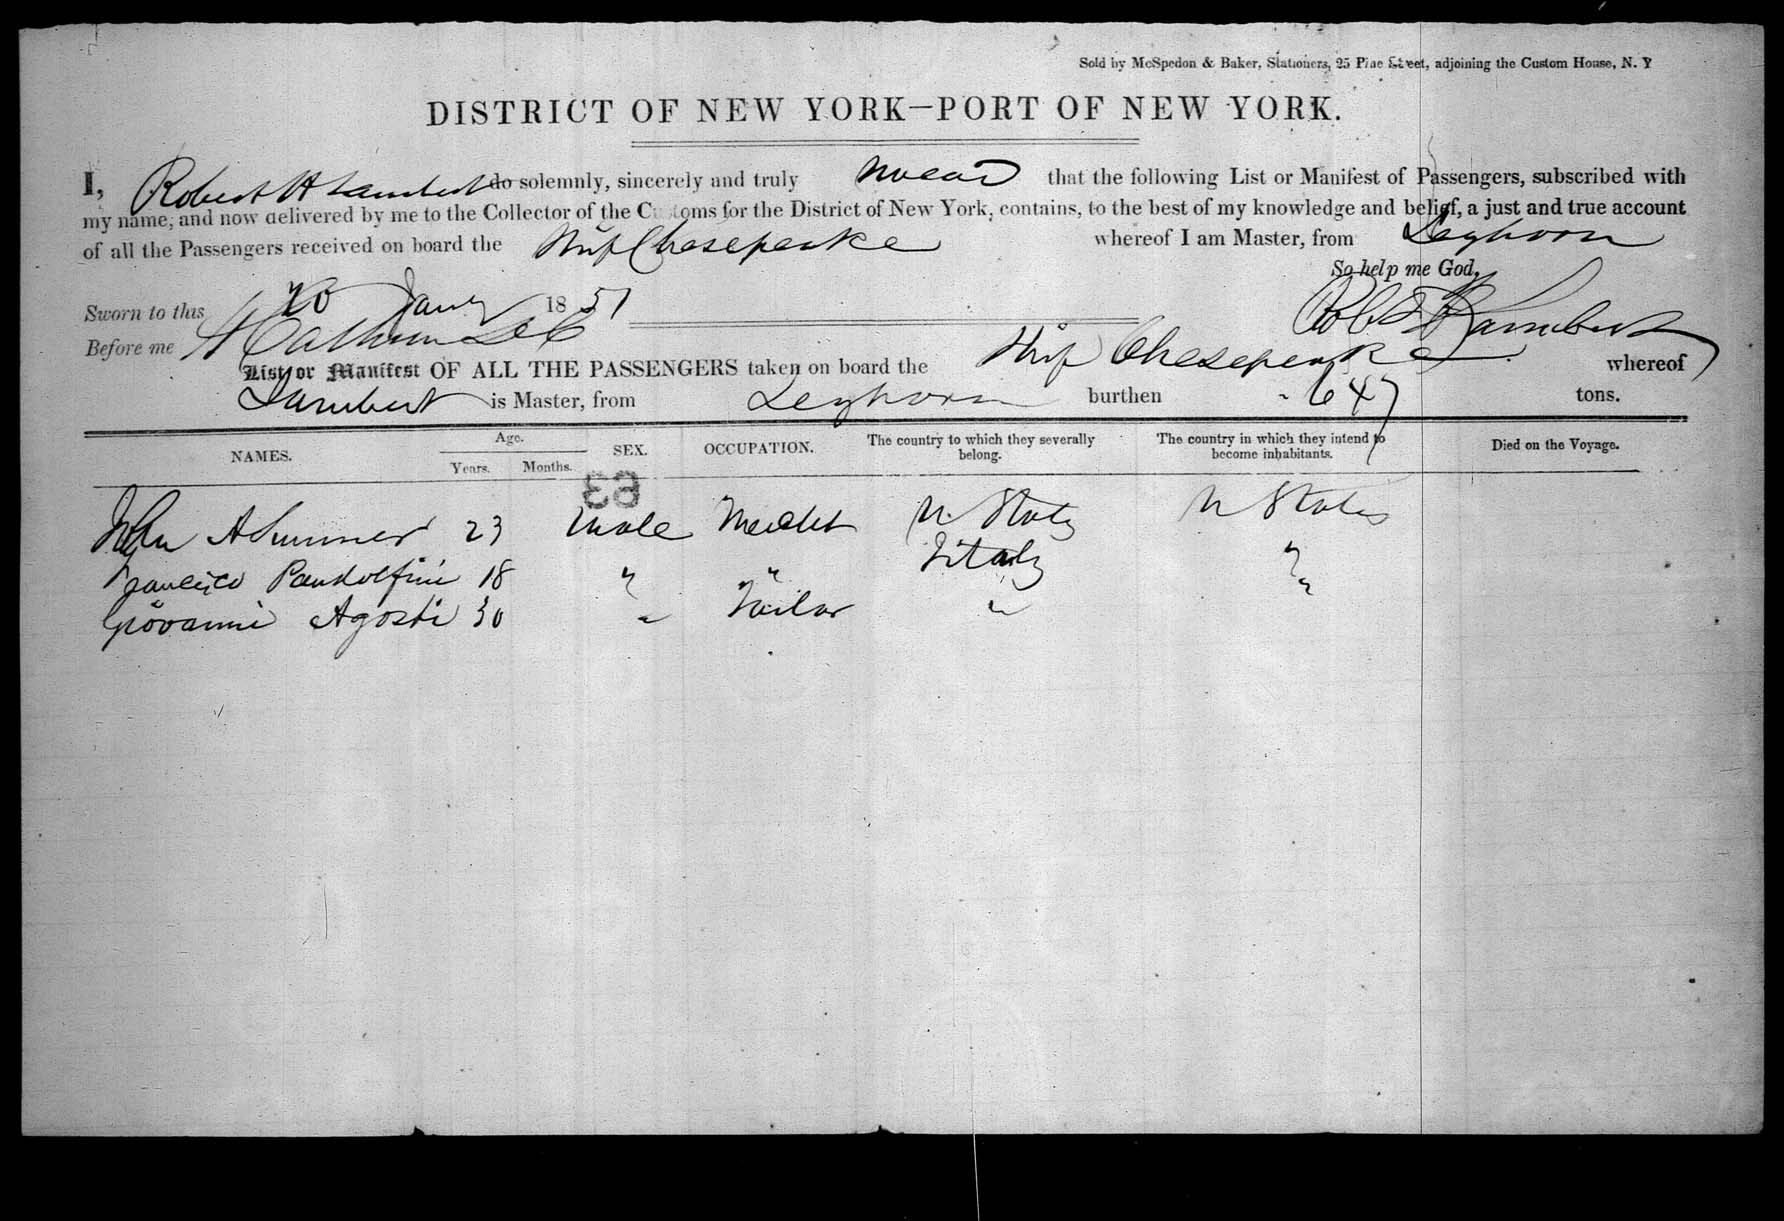 Sold by McSpedon & Baker, Stationers, 25 Pine Street, adjoining the Custom House, N. Y
DISTRICT OF NEW YORK—PORT OF NEW YORK.
I, Robert H Lambert do solemnly, sincerely and truly swear that the following List or Manifest of Passengers, subscribed with
my name, and now delivered by me to the Collector of the Customs for the District of New York, contains, to the best of my knowledge and belief, a just and true account
of all the Passengers received on board the Ship Chesepeake whereof I am Master, from Leghorn
So help me God,
Sworn to this 20 Jany 1851 Robt H Lambert
Before me
List or Manifest OF ALL THE PASSENGERS taken on board the Ship Chesepeake whereof
Lambert is Master, from Leghorn burthen 647 tons.
NAMES. Age. Years. Months. SEX. OCCUPATION. The country to which they severally belong. The country in which they intend to become inhabitants. Died on the Voyage.
63
John A Sumner 23 Male Mercht U. States U States
Francisco Pandolfini 18 " " Italy "
Giovanni Agosti 30 " Tailor " "